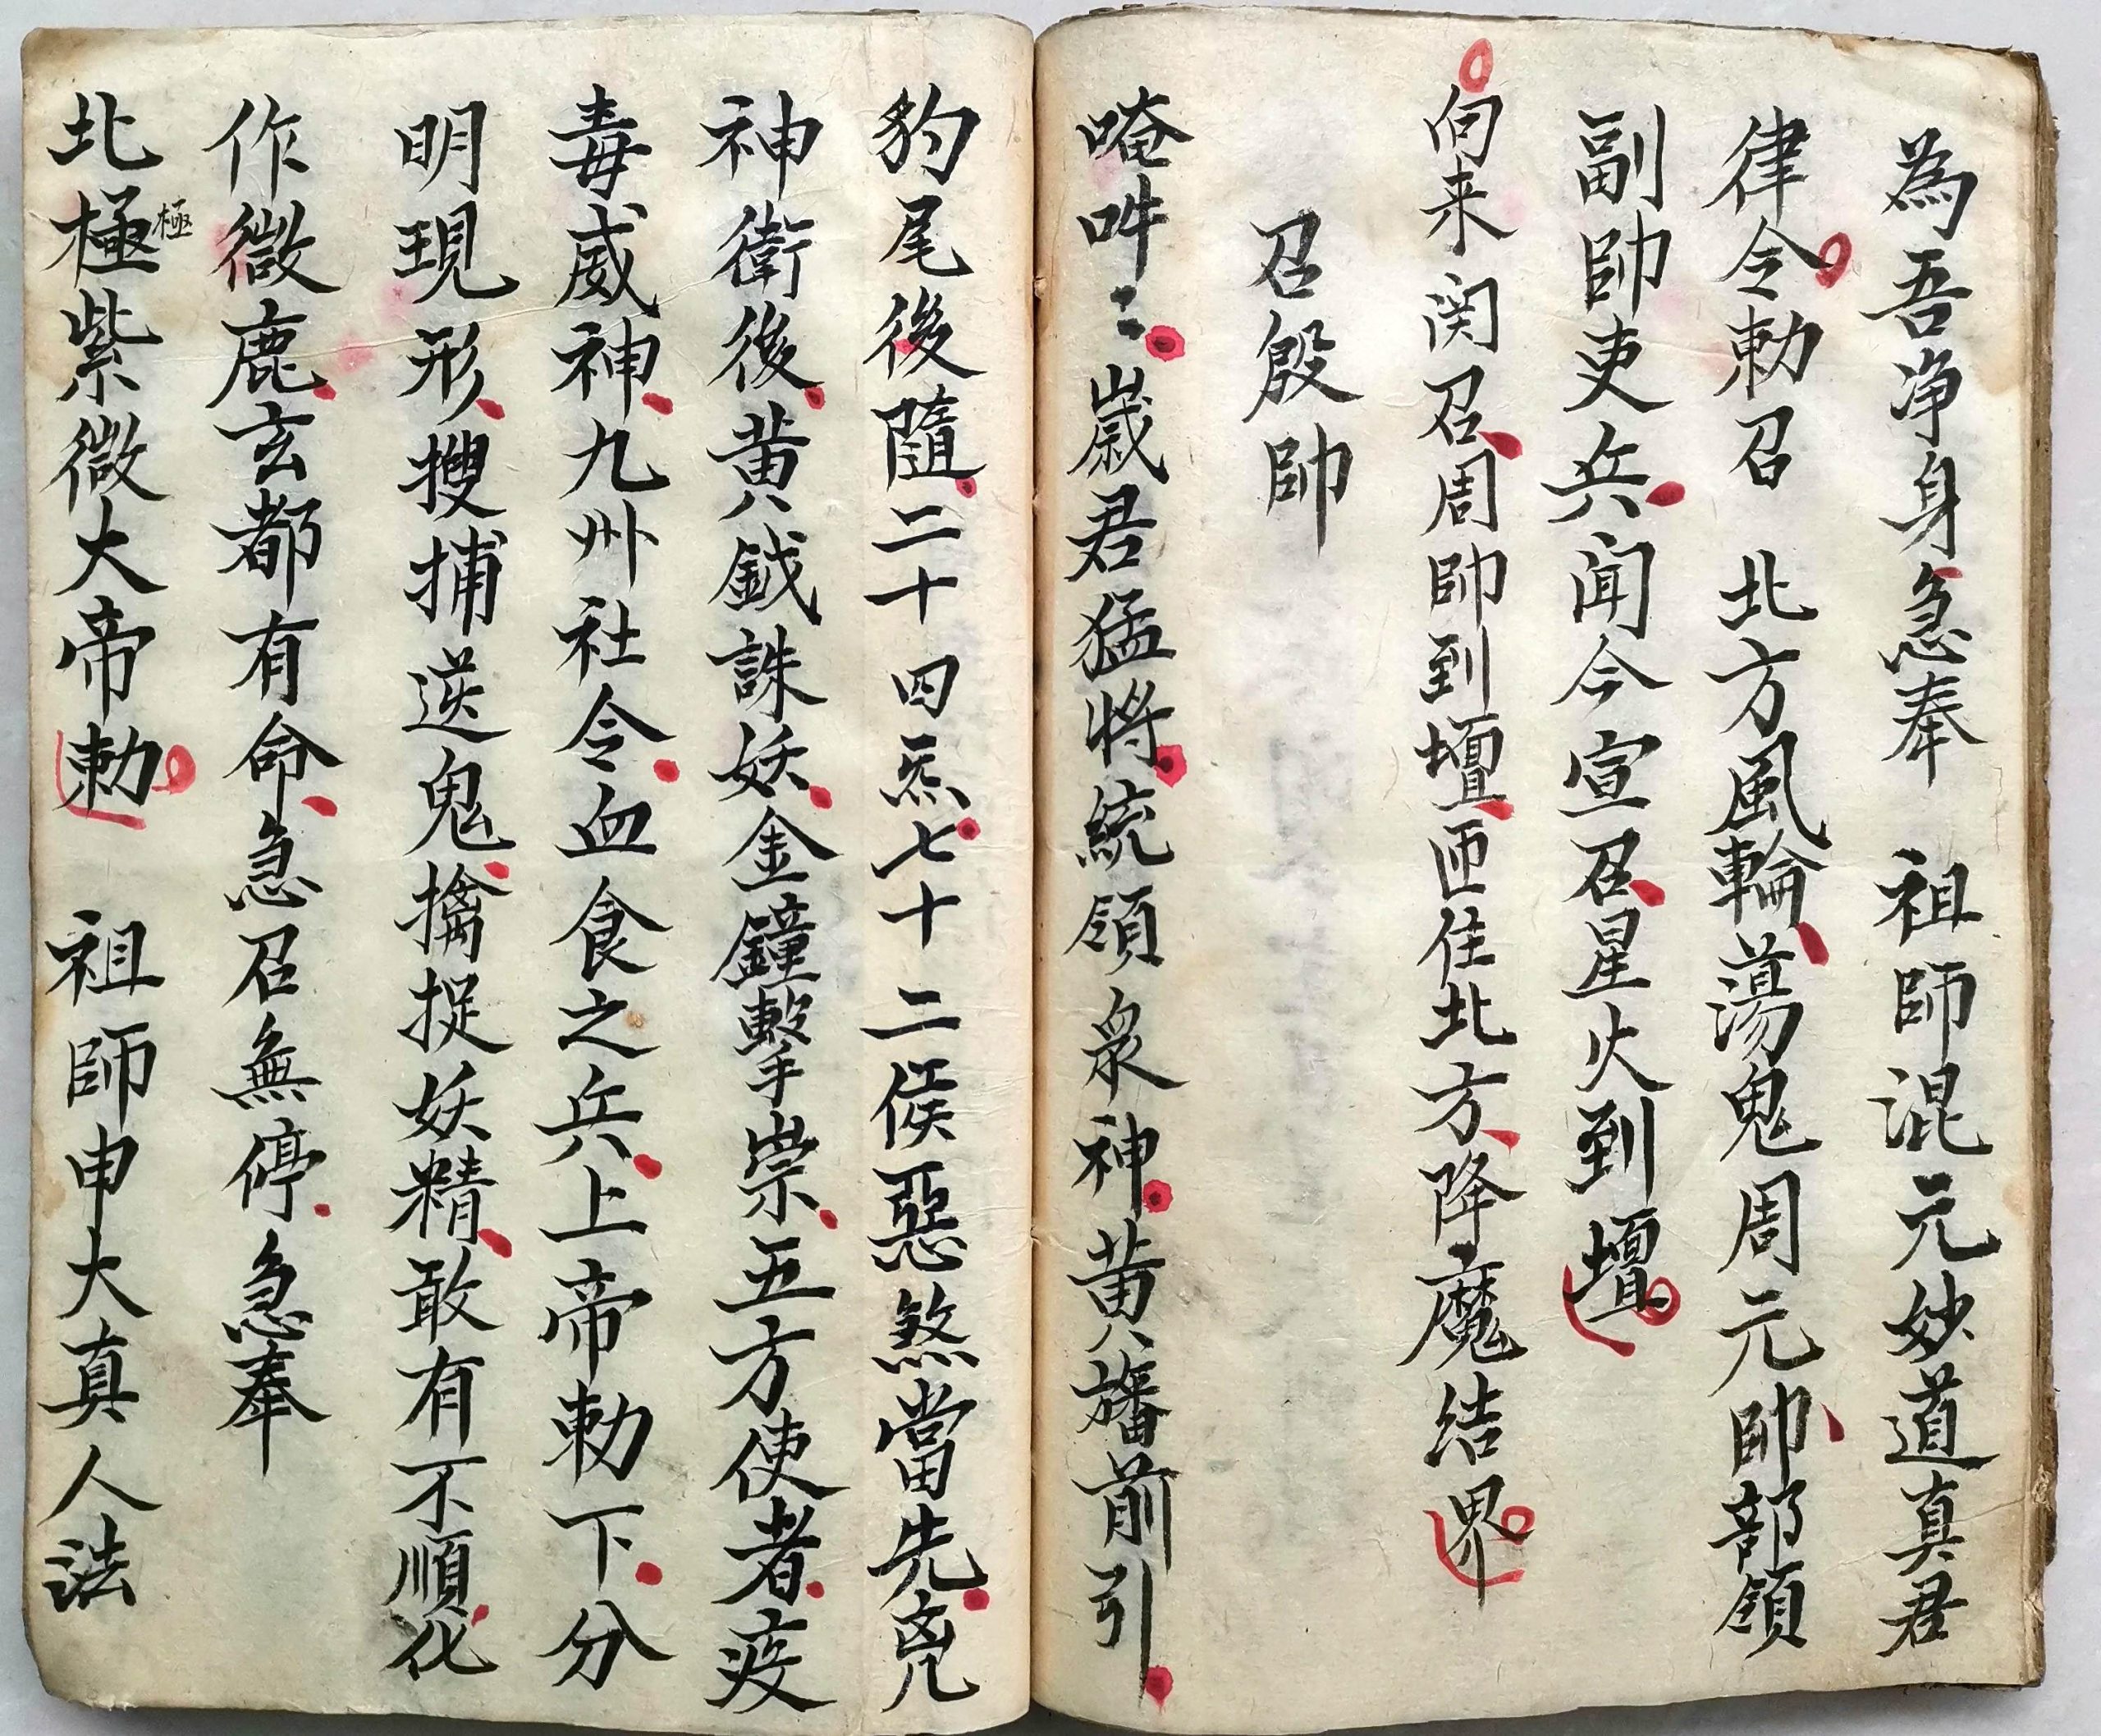 為吾净身急奉　祖師混元妙道真君
律令勅召　北方風輪蕩鬼周元帥部領
副帥吏兵闻今宣召星火到壇
向来関召周帥到壇匝住北方降魔结界
召殷帥
唵吽〻歲君猛將統領衆神黄旛前引
豹尾後隨二十四炁七十二候惡煞當先兇
神衛後黄鉞誅妖金鐘擊祟五方使者疫
毒威神九州社令血食之兵上帝勅下分
明現形搜捕逆鬼擒捉妖精敢有不順化
作微鹿玄都有命急召無停急奉
北極紫微大帝勅　祖師申大真人法
極